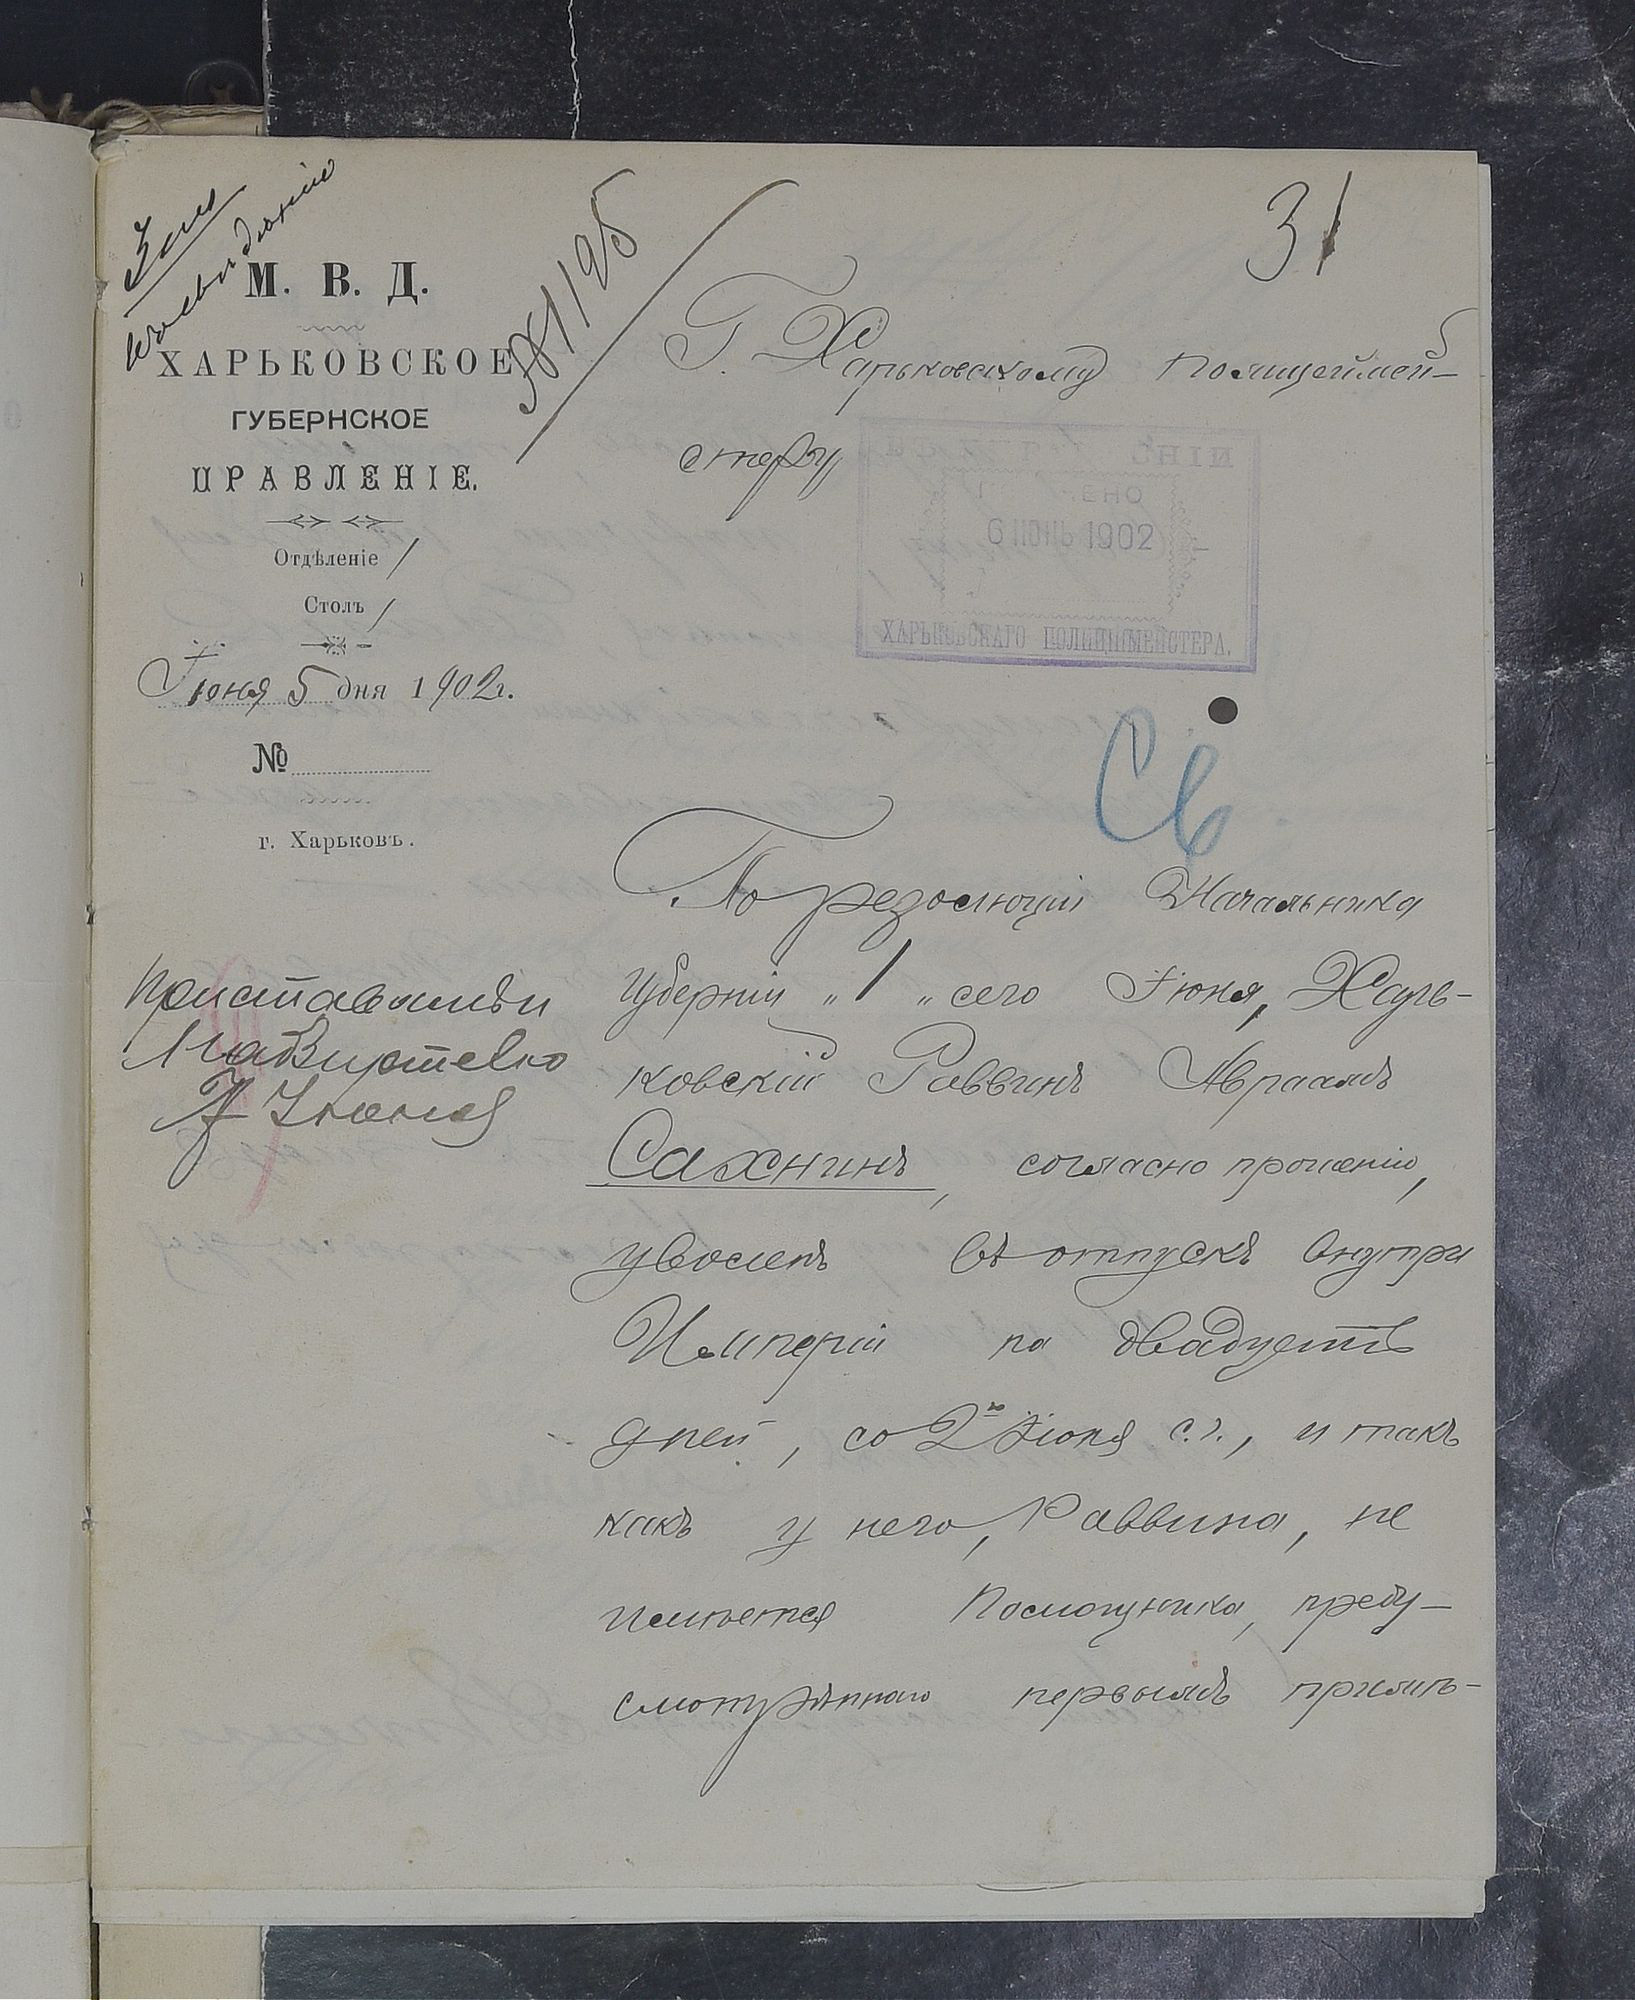 31
М. В. Д.
ХАРЬКОВСКОЕ
ГУБЕРНСКОЕ
ПРАВЛЕНІЕ.
Отдѣленіе 1
Столъ 1
Іюня 5 дня 1902 г.
№
г. Харьковъ.
Г. Харьковскому Полицеймей-
стеру
6 ІЮНЬ 1902
ХАРЬКОВСКАГО ПОЛИЦІЙМЕЙСТЕРА.
Св
По резолюціи Начальника
Губерніи „1„ сего Іюня, Харь-
ковскій Раввинъ Авраамъ
Сахнинъ, согласно прошенію,
уволенъ въ отпускъ внутри
Имперіи на двадцать
дней, со 2го Іюня с.г., и такъ
какъ у него, Раввина, не
имѣется Помощника, преду-
смотрѣннаго первымъ примѣ-
Приставамъ
7 Іюня